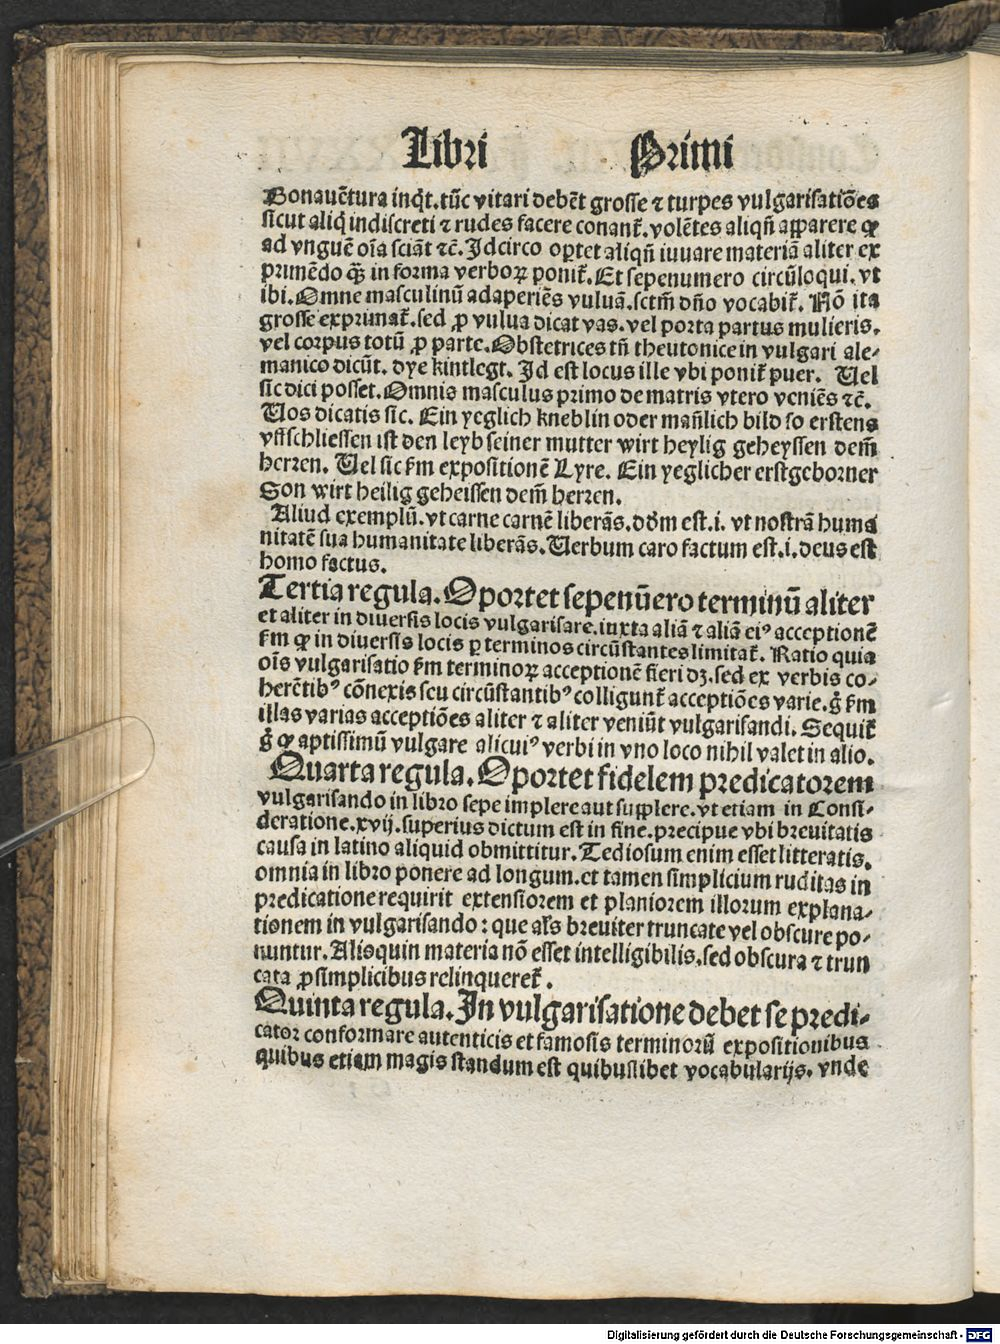 Libri Primi
Bonauētura inq̄t. tūc vitari debēt grosse ⁊ turpes vulgarisatiōes
sicut aliq̄ indiscreti ⁊ rudes facere conant᷑. volētes aliqn̄ apparere ꝙ
ad vnguē oīa sciāt ⁊c̄. Idcirco oꝑtet aliqn̄ iuuare materiā aliter ex
primēdo q̄ꝫ in forma verboꝝ ponit᷑. Et sepenumero circūloqui. vt
ibi. Omne masculinū adaperiēs vuluā. sctm̄ dn̄o vocabit᷑. Nō ita
grosse exprimat᷑. sed ꝓ vulua dicat vas. vel porta partus mulieris.
vel corpus totū ꝓ parte. Obstetrices tn̄ theutonice in vulgari ale⸗
manico dicūt. dye kintlegt. Id est locus ille vbi ponit᷑ puer. Uel
sic dici posset. Omnis masculus primo de matris vtero veniēs ⁊c̄.
Uos dicatis sic. Ein yeglich kneblin oder man̄lich bild so erstens
vffschliessen ist den leyb seiner mutter wirt heylig geheyssen dem̄
herren. Uel sic ẜm expositionē Lyre. Ein yeglicher erstgeborner
Son wirt heilig geheissen dem̄ herren.
Aliud exemplū. vt carne carnē liberās. dd̄m est .i. vt nostrā huma
nitatē sua humanitate liberās. Uerbum caro factum est .i. deus est
homo factus.
Tertia regula. Oportet sepenūero terminū aliter
et aliter in diuersis locis vulgarisare. iuxta aliā ⁊ aliā eiꝰ acceptionē
ẜm ꝙ in diuersis locis ꝑ terminos circūstantes limitat᷑. Ratio quia
oīs vulgarisatio ẜm terminoꝝ acceptionē fieri dꝫ. sed ex verbis co⸗
herētibꝰ cōnexis seu circūstantibꝰ colligunt᷑ acceptiōes varie. g̊ ẜm
illas varias acceptiōes aliter ⁊ aliter veniūt vulgarisandi. Sequit᷑
g̊ ꝙ aptissimū vulgare alicuiꝰ verbi in vno loco nihil valet in alio.
Quarta regula. Oportet fidelem predicatorem
vulgarisando in libro sepe implere aut supplere. vt etiam in Consi⸗
deratione .xvij. superius dictum est in fine. precipue vbi breuitatis
causa in latino aliquid obmittitur. Tediosum enim esset litteratis.
omnia in libro ponere ad longum. et tamen simplicium ruditas in
predicatione requirit extensiorem et planiorem illorum explana⸗
tionem in vulgarisando: que al̓s breuiter truncate vel obscure po⸗
nuntur. Alioquin materia nō esset intelligibilis. sed obscura ⁊ trun
cata ꝓ simplicibus relinqueret᷑.
Quinta regula. In vulgarisatione debet se predi⸗
cator conformare autenticis et famosis terminorū expositionibus
quibus etiam magis standum est quibuslibet vocabularijs. vnde
Digitalisierung gefördert durch die Deutsche Forschungsgemeinschaft - DFG